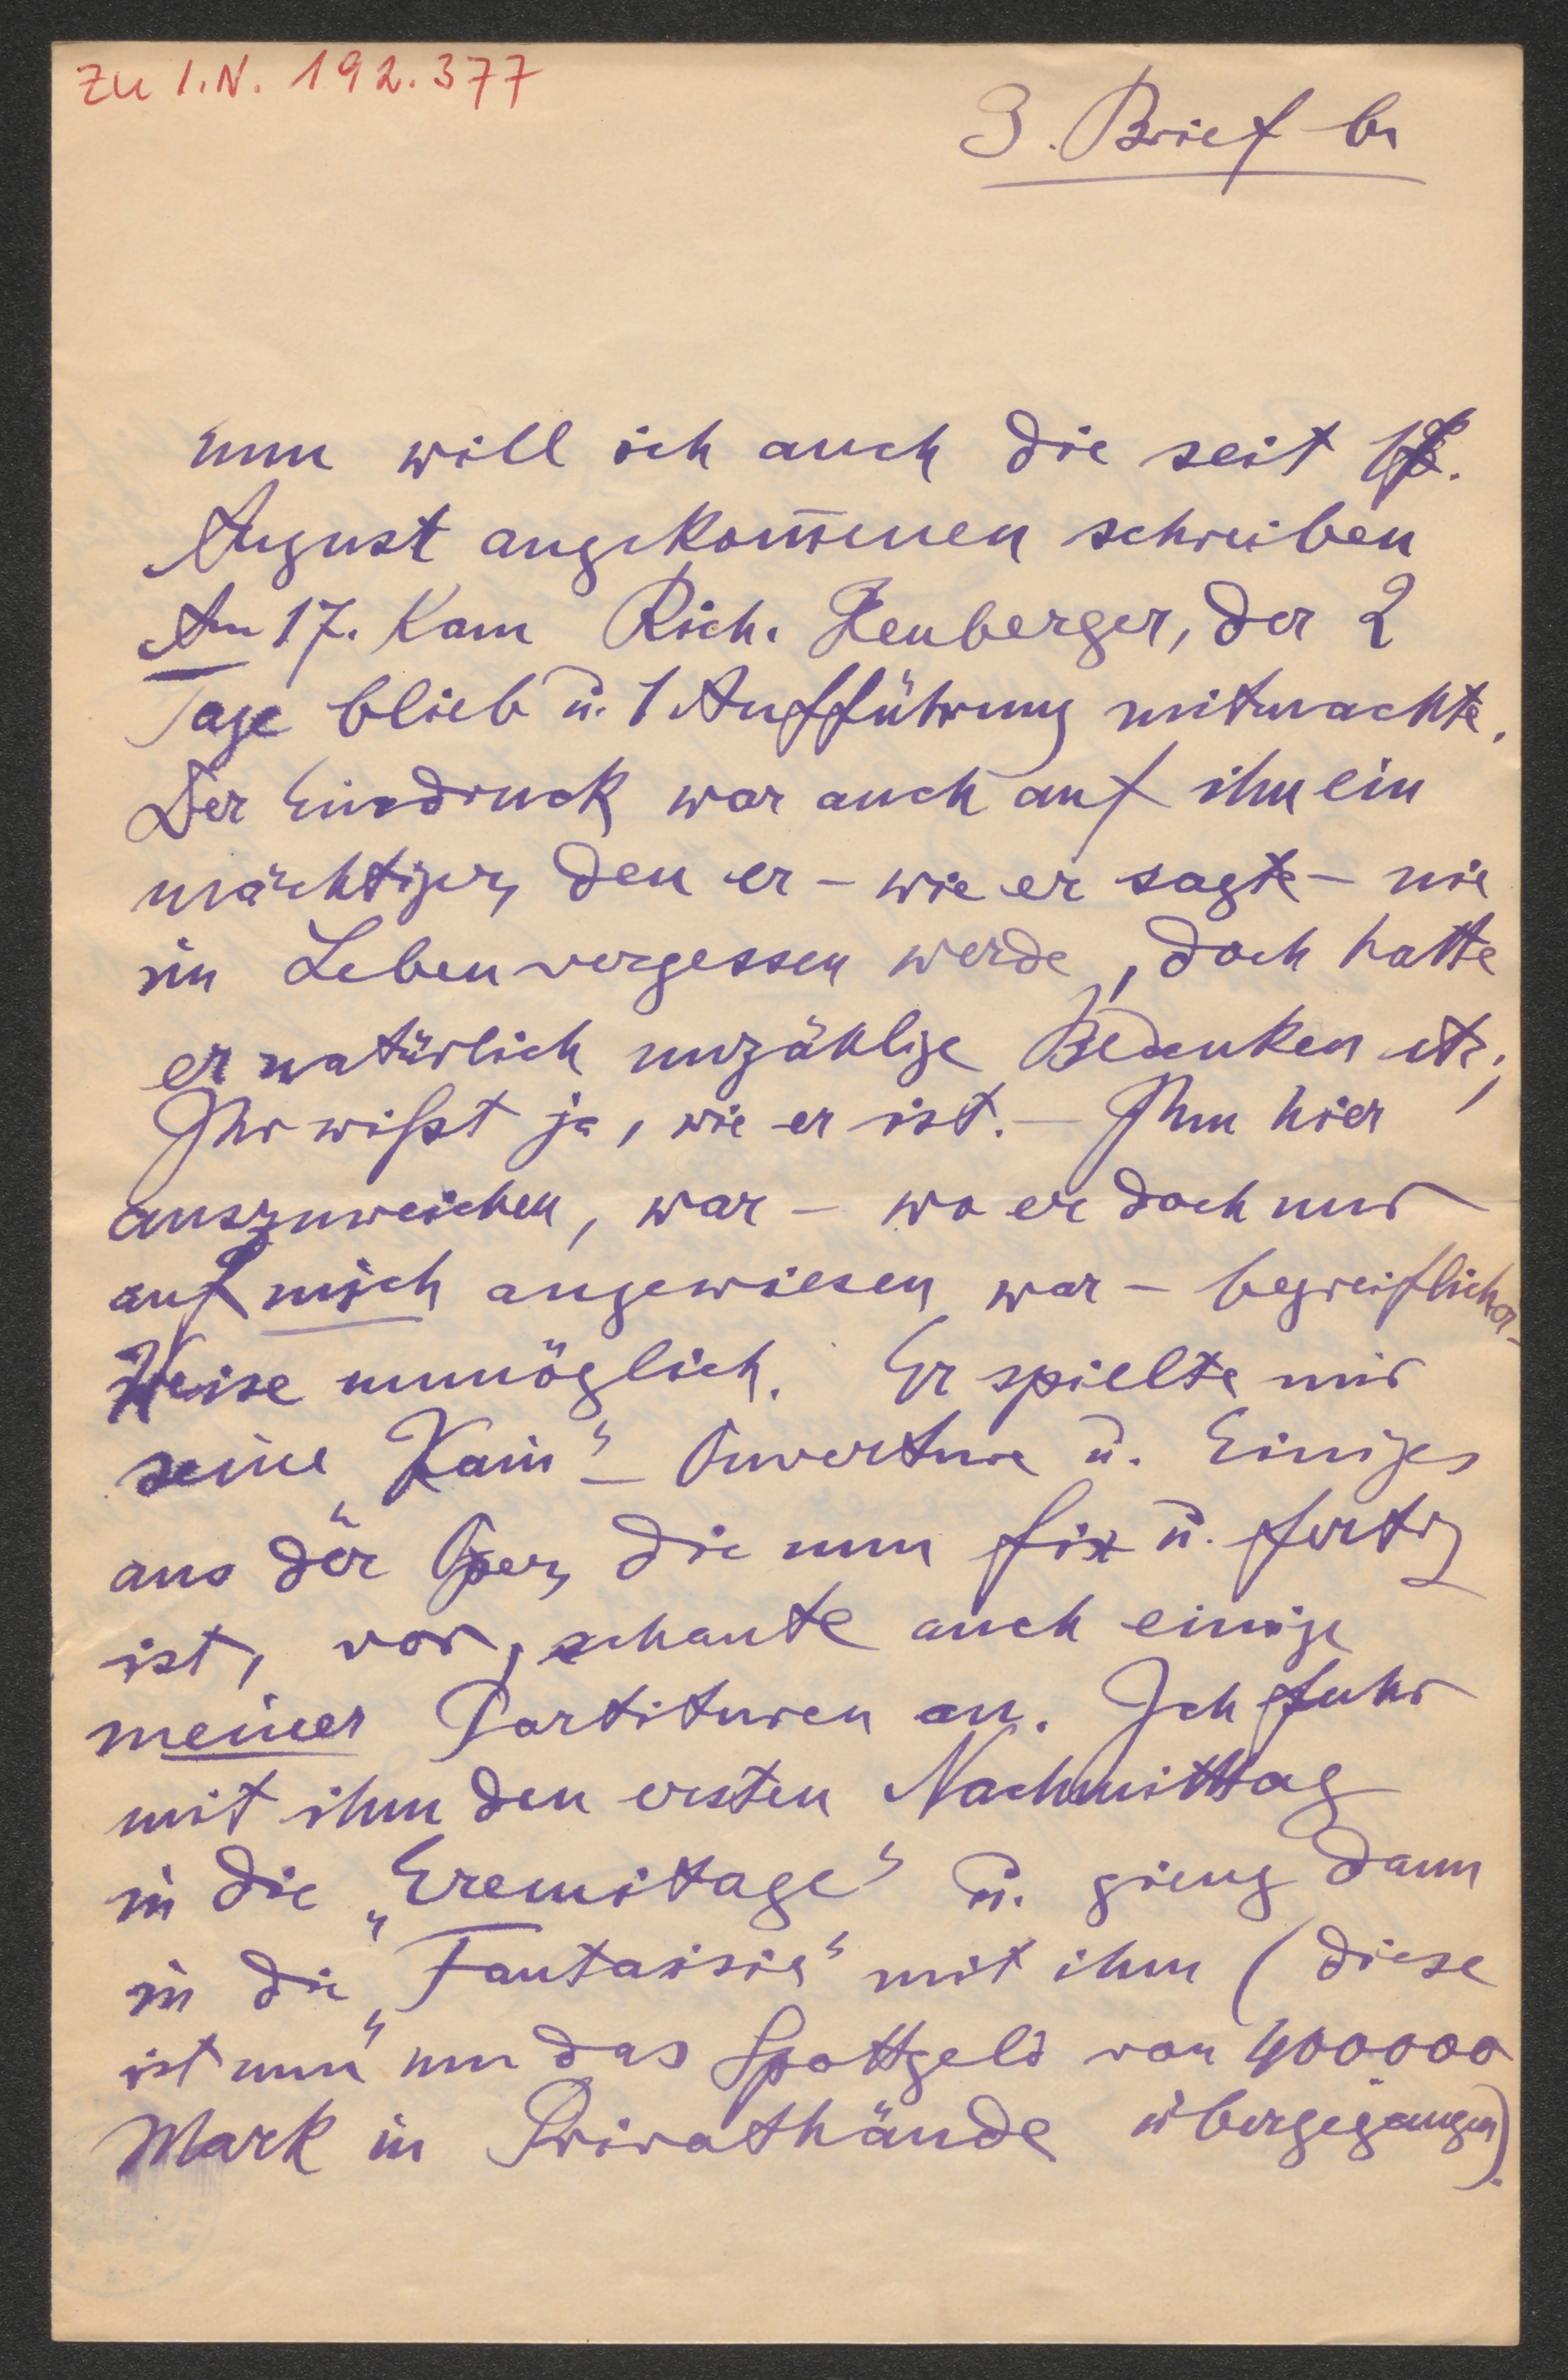 zu I.N. 192.377
3. Brief b
nun will ich auch die seit
August angekom̅enen schreiben
Am 17. kam Rich. Heuberger, der 2
Tage blieb u. 1 Aufführung mitmachte.
Der Eindruck war auch auf ihn ein
mächtiger, den er – wie er sagte – nie
im Leben vergessen werde, doch hatte
er natürlich unzählige Bedenken etc;
Ihr wißt ja, wie er ist. – Ihm hier
auszuweichen, war – wo er doch nur
auf mich angewiesen war – begreiflicher-
Weise unmöglich. Er spielte mir
seine „Kain“ – Ouverture u. Einiges
aus der Oper, die nun fix u. fertig
ist, vor, schaute auch einige
meiner Partituren an. Ich fuhr
mit ihm den ersten Nachmittag
in die „Eremitage“ u. gieng dann
in die „Fantaisie“ mit ihm (diese
ist nun um das Spottgeld von 400000
Mark in Privathände übergegangen).